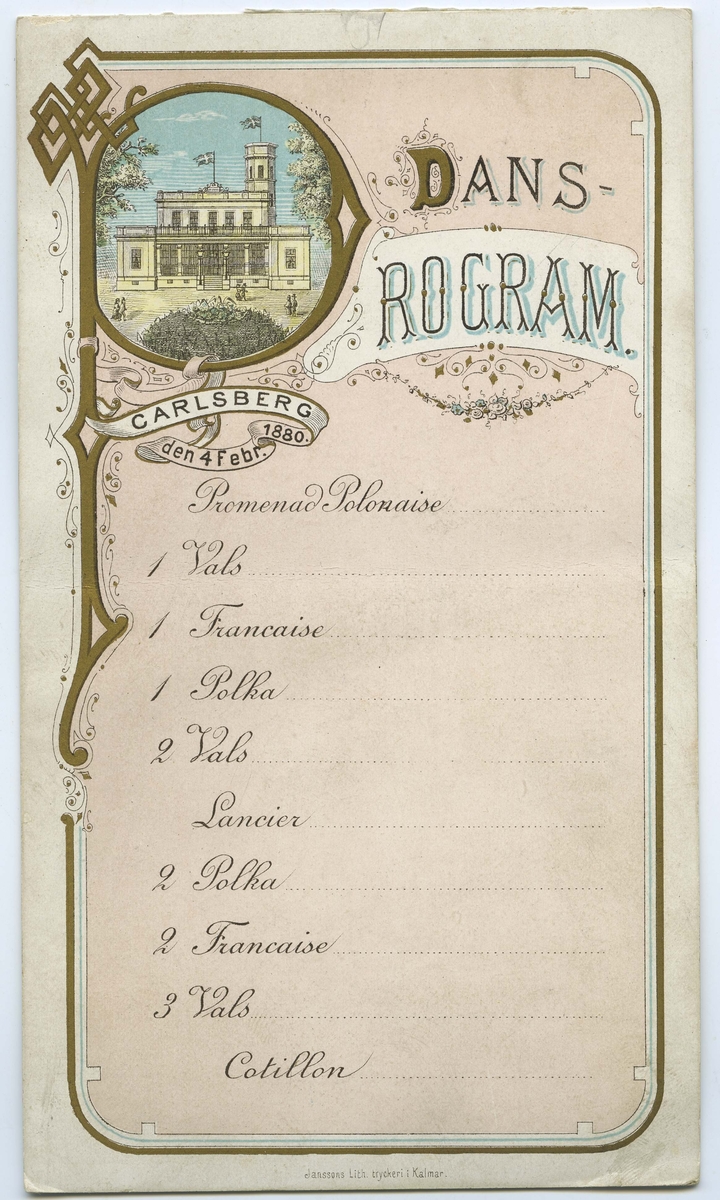 DANS-
PROGRAM.
CARLSBERG
den 4 Febr. 1880.
Promenad Polonaise
1 Vals
1 Francaise
1 Polka
2 Vals
Lancier
2 Polka
2 Francaise
3 Vals
Cotillon
Janssons Lith. tryckeri i Kalmar.